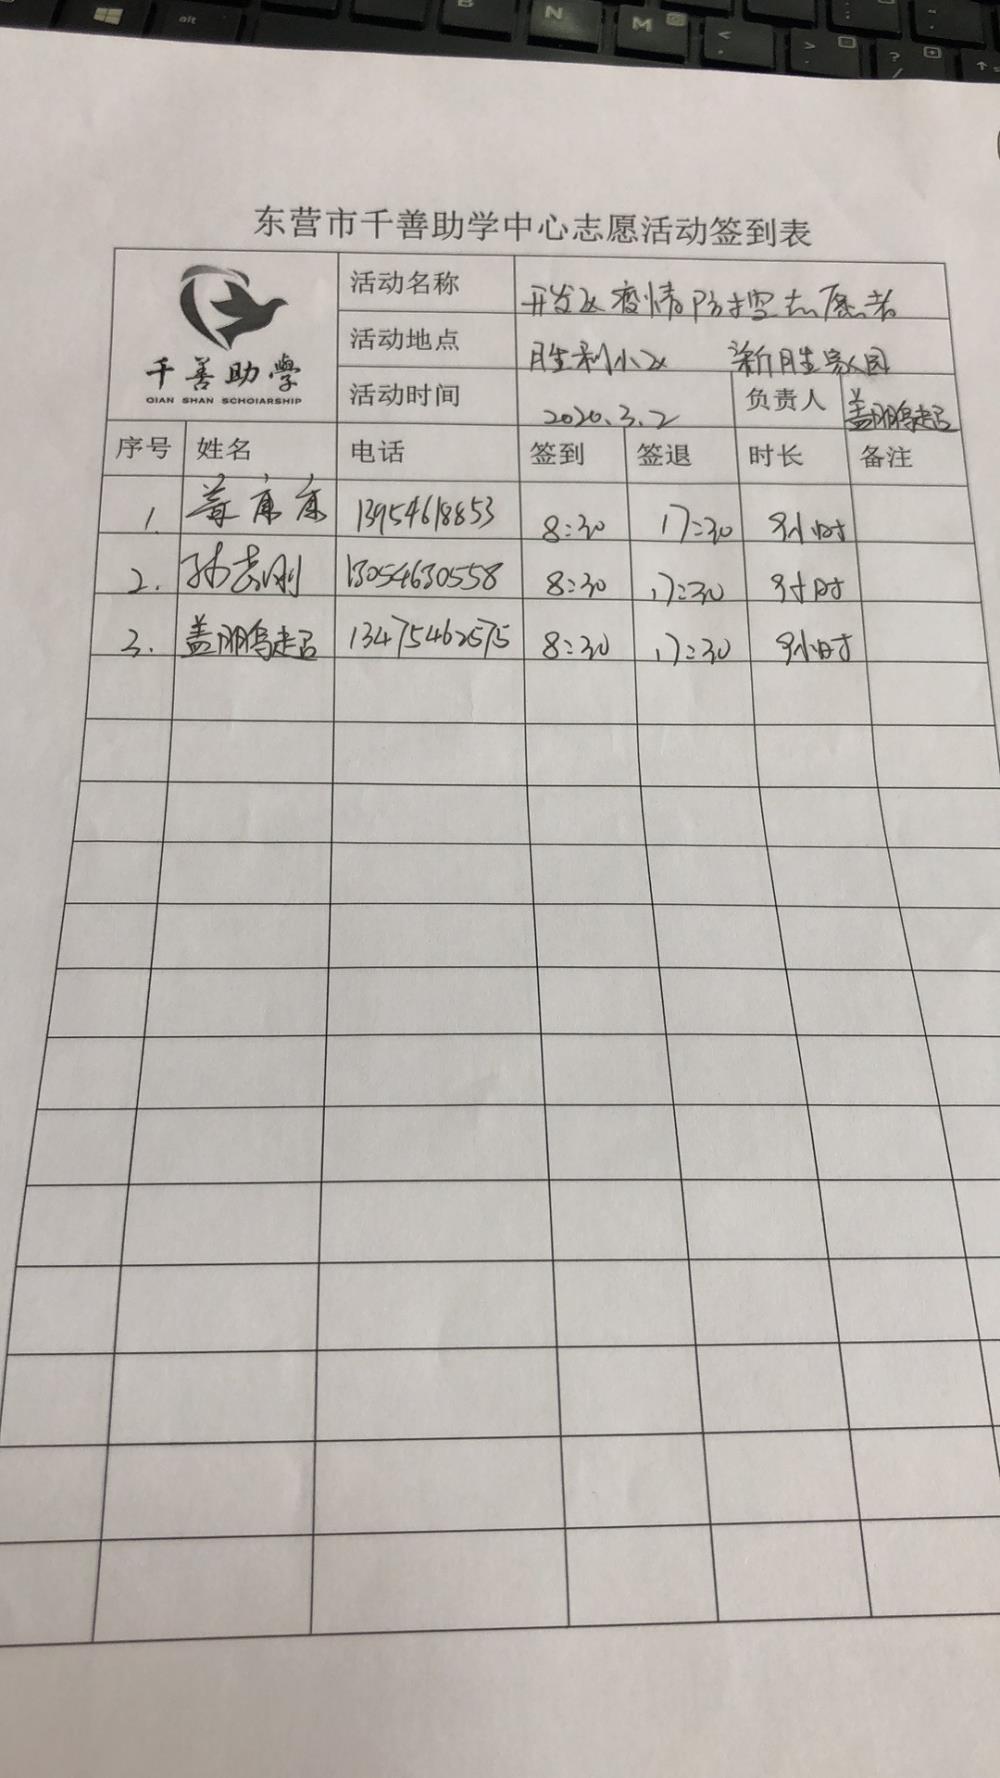 alt
B N M
< , > . ? /
东营市千善助学中心志愿活动签到表
千善助学
QIAN SHAN SCHOIARSHIP
活动名称 开发区疫情防控志愿者
活动地点 胜利小区 新胜家园
活动时间 2020.3.2 负责人 盖鹏超
序号 姓名 电话 签到 签退 时长 备注
1. 13954618853 8:30 17:30 9小时
2. 孙志刚 13054630558 8:30 17:30 9小时
3. 盖鹏超 13475462575 8:30 17:30 9小时